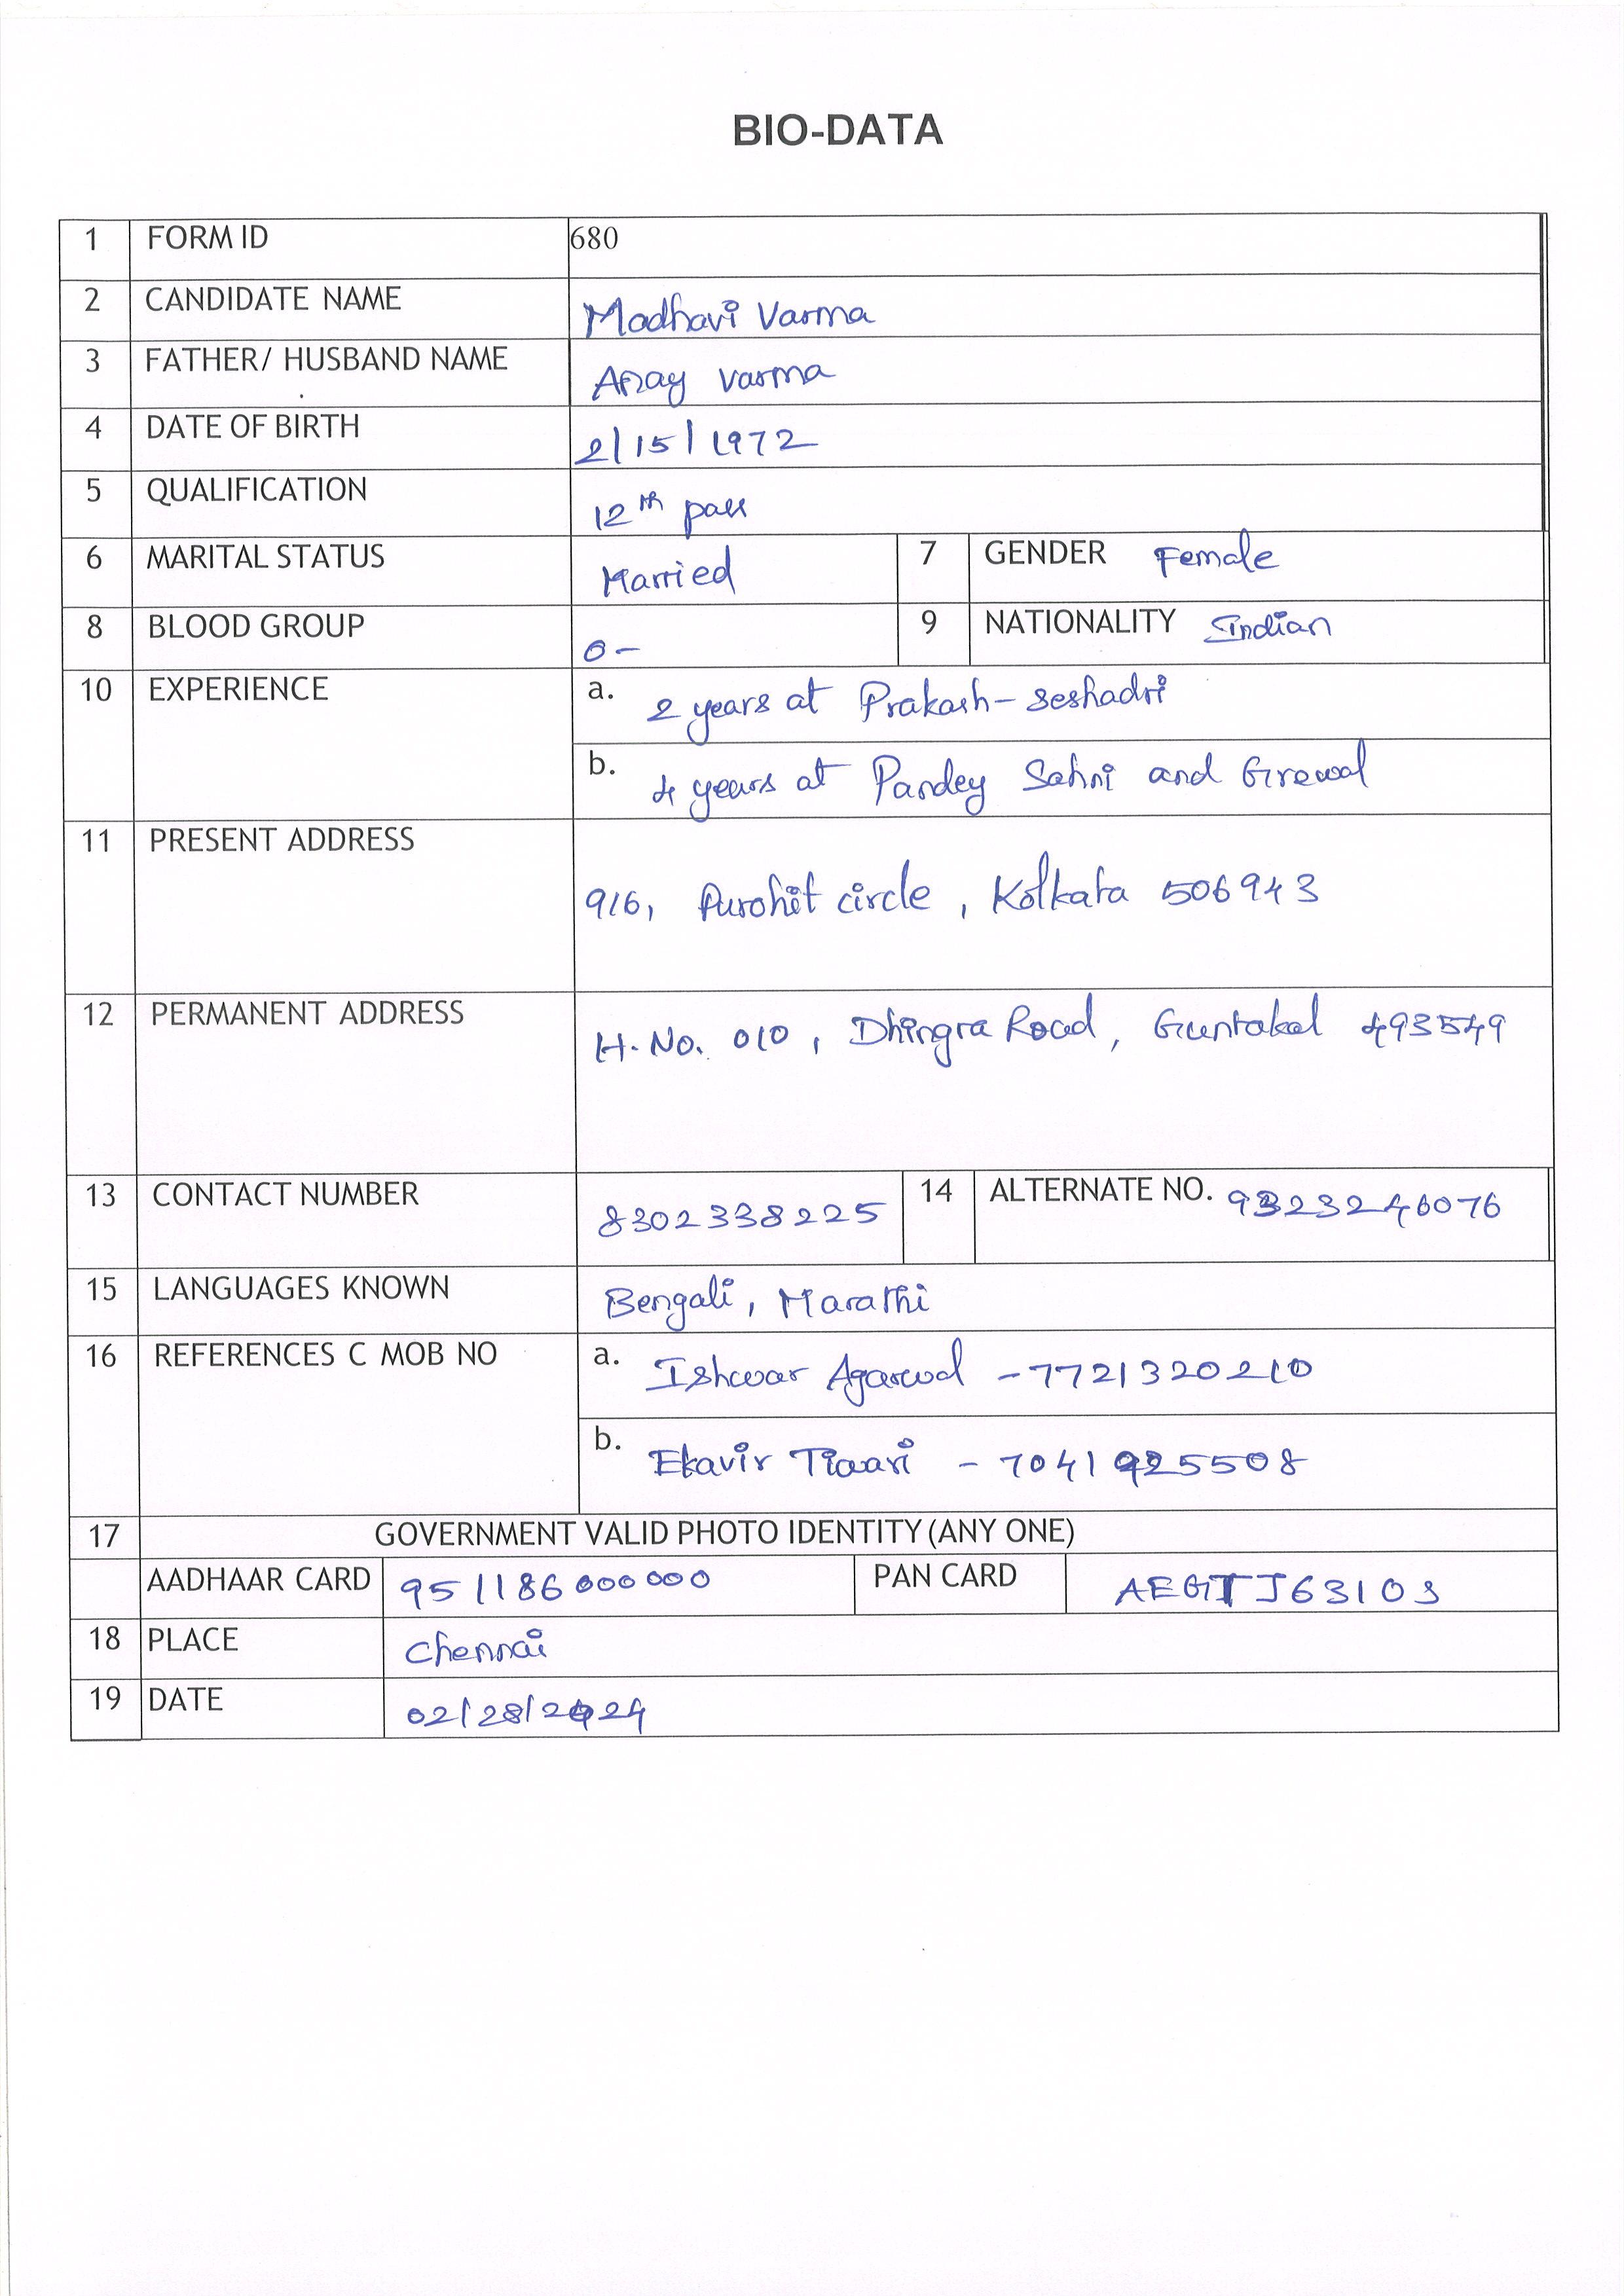 BIO-DATA
1 FORM ID 680
2 CANDIDATE NAME Madhavi Varma
3 FATHER/ HUSBAND NAME Anay Varma
4 DATE OF BIRTH 2/15/1972
5 QUALIFICATION 12th pass
6 MARITAL STATUS Married 7 GENDER Female
8 BLOOD GROUP O- 9 NATIONALITY Indian
10 EXPERIENCE a. 2 years at Prakash-Seshadri
b. 4 years at Pandey Sahni and Grewal
11 PRESENT ADDRESS
916, Purohit circle, Kolkata 506943
12 PERMANENT ADDRESS H.No. 010, Dhingra Road, Guntakal 493549
13 CONTACT NUMBER 8302338225 14 ALTERNATE NO. 9323246076
15 LANGUAGES KNOWN Bengali, Marathi
16 REFERENCES C MOB NO a. Ishwar Agarwal - 7721320210
b. Ekavir Tiwari - 7041925508
17 GOVERNMENT VALID PHOTO IDENTITY (ANY ONE)
AADHAAR CARD 951186000000 PAN CARD
18 PLACE Chennai
19 DATE 02/28/2024